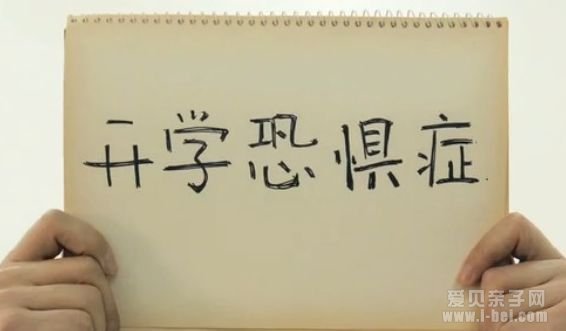 开学恐惧症
爱贝亲子网
www.i-bei.com